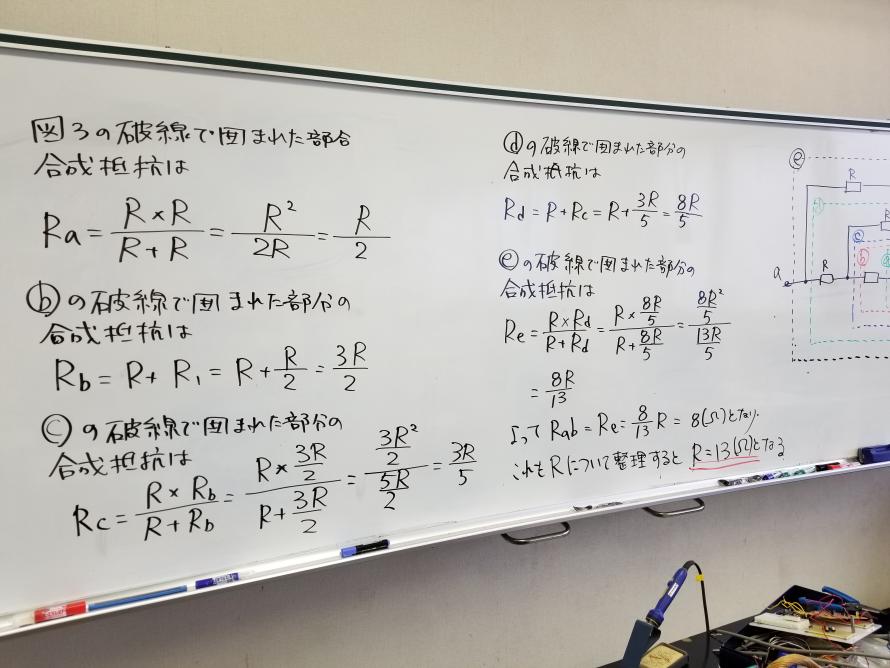 図3の破線で囲まれた部分
合成抵抗は
Ra = R×R/R+R = R²/2R = R/2
ⓑの破線で囲まれた部分の
合成抵抗は
Rb = R + R₁ = R + R/2 = 3R/2
ⓒの破線で囲まれた部分の
合成抵抗は
Rc = R×Rb/R+Rb = R×3R/2/R+3R/2 = 3R²/2/5R/2 = 3R/5
ⓓの破線で囲まれた部分の
合成抵抗は
Rd = R + Rc = R + 3R/5 = 8R/5
ⓔの破線で囲まれた部分の
合成抵抗は
Re = R×Rd/R+Rd = R×8R/5/R+8R/5 = 8R²/5/13R/5
= 8R/13
よって Rab = Re = 8/13 R = 8(Ω)となり.
これをRについて整理すると R=13(Ω)となる
ⓔ
R
ⓓ
R
ⓒ
ⓑ
ⓐ
a
R